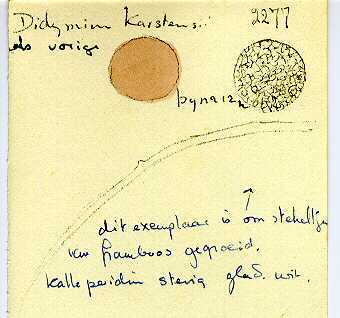 Didymium Karstens..
2277
als vorige
bijna 12 µ
dit exemplaar is om stekeltjes
van framboos gegroeid.
Kalk peridium stevig glad. wit.